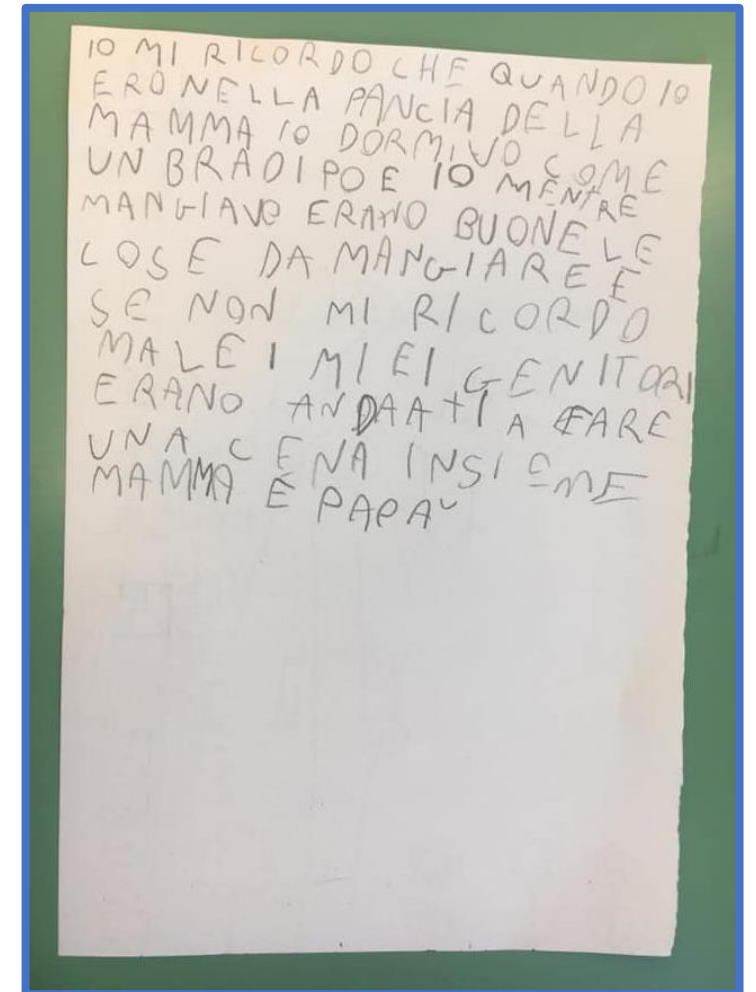 IO MI RICORDO CHE QUANDO IO
ERO NELLA PANCIA DELLA
MAMMA IO DORMIVO COME
UN BRADIPO E IO MENTRE
MANGIAVO ERANO BUONE LE
COSE DA MANGIARE E
SE NON MI RICORDO
MALE I MIEI GENITORI
ERANO ANDAATI A FARE
UNA CENA INSIEME
MAMMA E PAPA˘